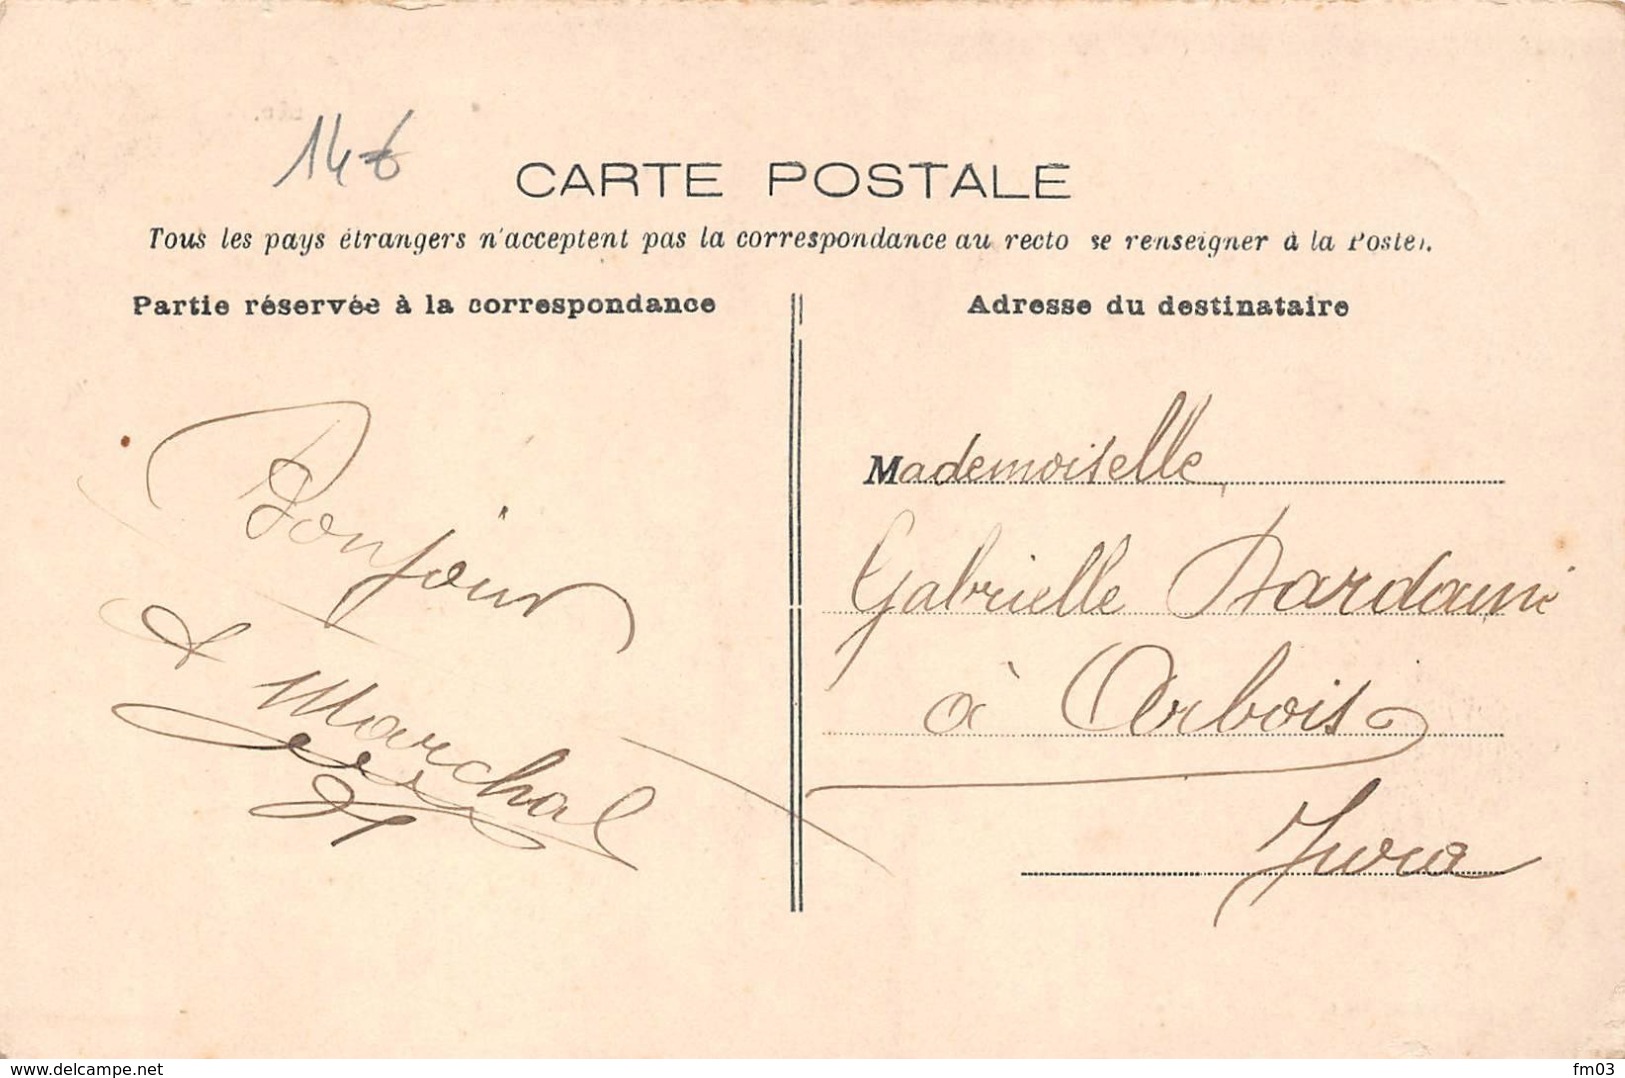 14€
CARTE POSTALE
Tous les pays étrangers n'acceptent pas la correspondance au recto se renseigner à la Poste).
Partie réservée à la correspondance
Adresse du destinataire
Bonjour
Marchal
Mademoiselle
Gabrielle
à Arbois
Jura
www.delcampe.net
fm03